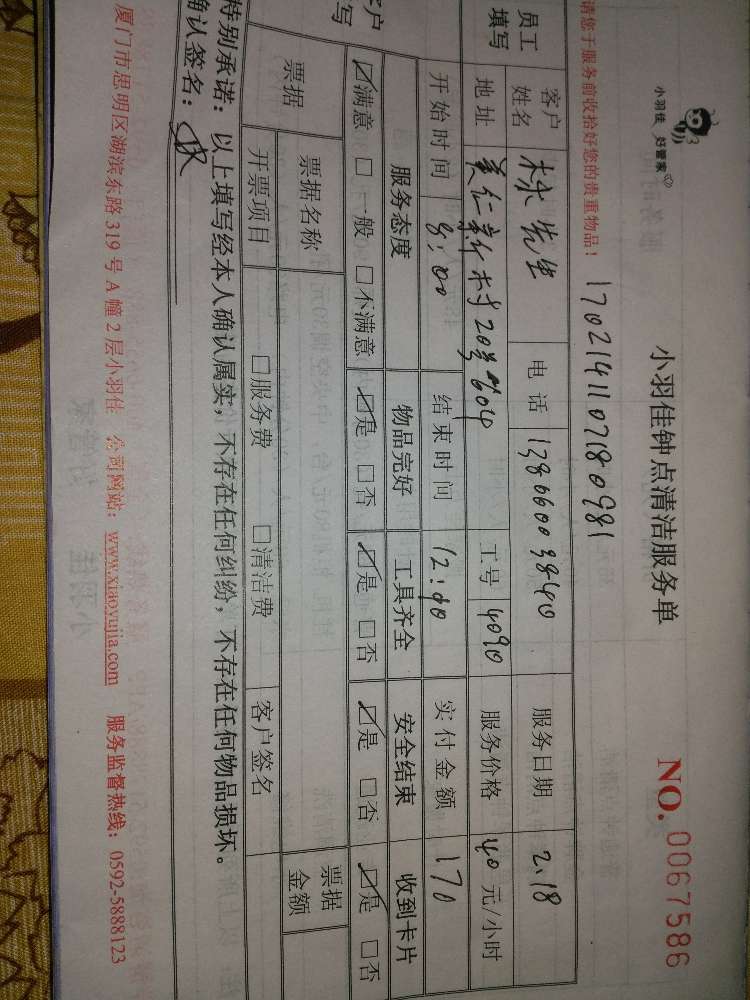 小羽佳 好管家
小羽佳钟点清洁服务单
NO. 0067586
请您于服务前收拾好您的贵重物品！ 1702141107180981
员工填写 客户姓名 林先生 电话 服务日期 2.18
地址 美仁新村20号 604 工号 4090 服务价格 40 元/小时
开始时间 8:00 结束时间 12:10 实付金额 170
客户 写 服务态度 物品完好 工具齐全 安全结束 收到卡片
☑满意 □一般 □不满意 ☑是 □否 ☑是 □否 ☑是 □否 ☑是 □否
票据 票据名称 票据金额
开票项目 □服务费 □清洁费 客户签名
特别承诺：以上填写经本人确认属实，不存在任何纠纷，不存在任何物品损坏。
确认签名：
厦门市思明区湖滨东路 319 号 A 幢 2 层小羽佳 公司网站：www.xiaoyujia.com 服务监督热线：0592-5888123